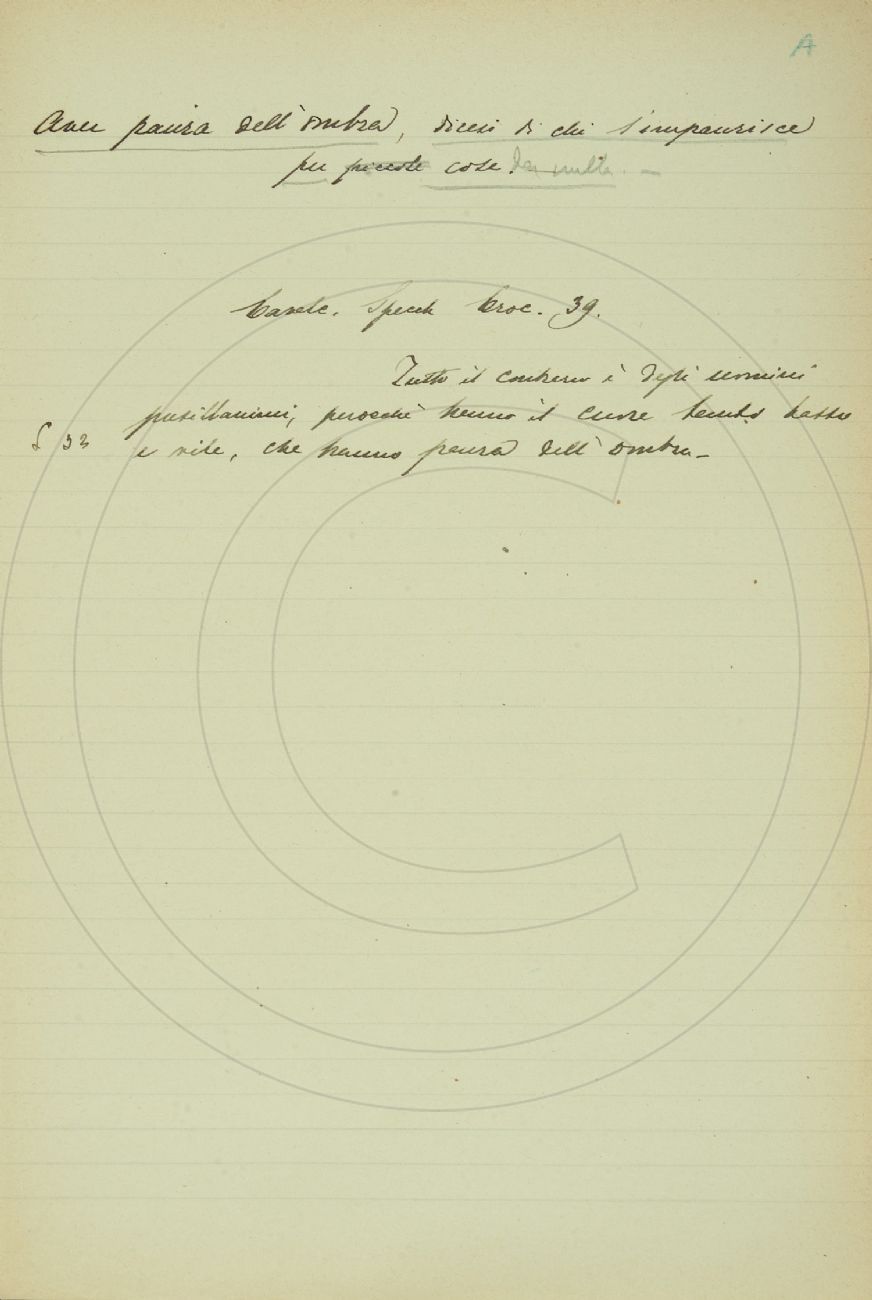 A
Aver paura dell'ombra, dicesi di chi s'impaurisce
per piccole cose. da nulla. —
Cavalc. Specch Croc. 39.
Tutto il contrario è degli uomini
pusillanimi, perocchè hanno il cuore tanto basso
e vile, che hanno paura dell'ombra_